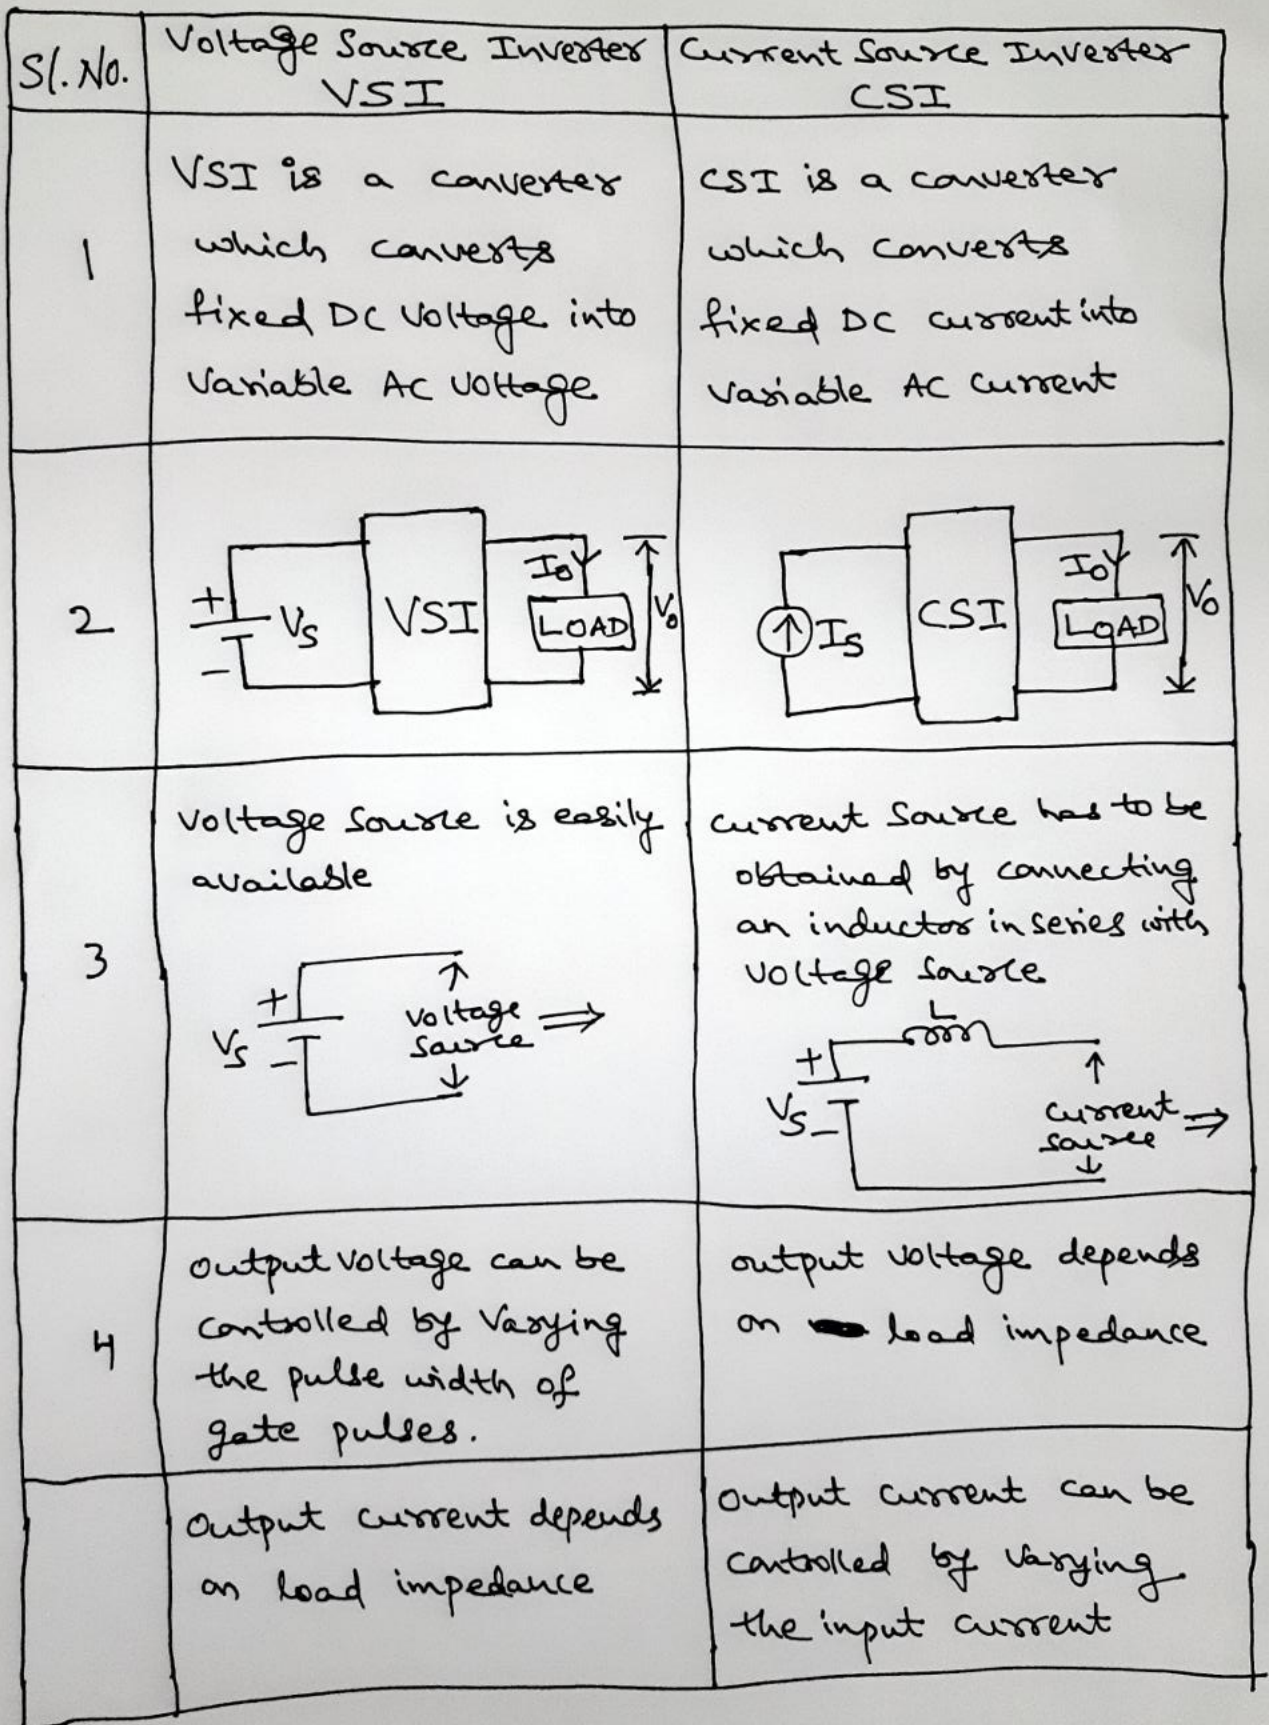 Sl. No.
Voltage Source Inverter
VSI
Current Source Inverter
CSI
1
VSI is a converter
which converts
fixed DC Voltage into
Variable AC Voltage
CSI is a converter
which converts
fixed DC current into
Variable AC Current
2
+
Vs
-
VSI
Io
LOAD
Vo
Is
CSI
Io
LOAD
Vo
3
Voltage Source is easily
available
+
Vs
-
Voltage
Source
⇒
Current Source has to be
obtained by connecting
an inductor in series with
Voltage Source
L
+
Vs
-
Current
Source
⇒
4
Output Voltage can be
controlled by Varying
the pulse width of
gate pulses.
output voltage depends
on load impedance
Output current depends
on load impedance
Output current can be
controlled by Varying
the input current